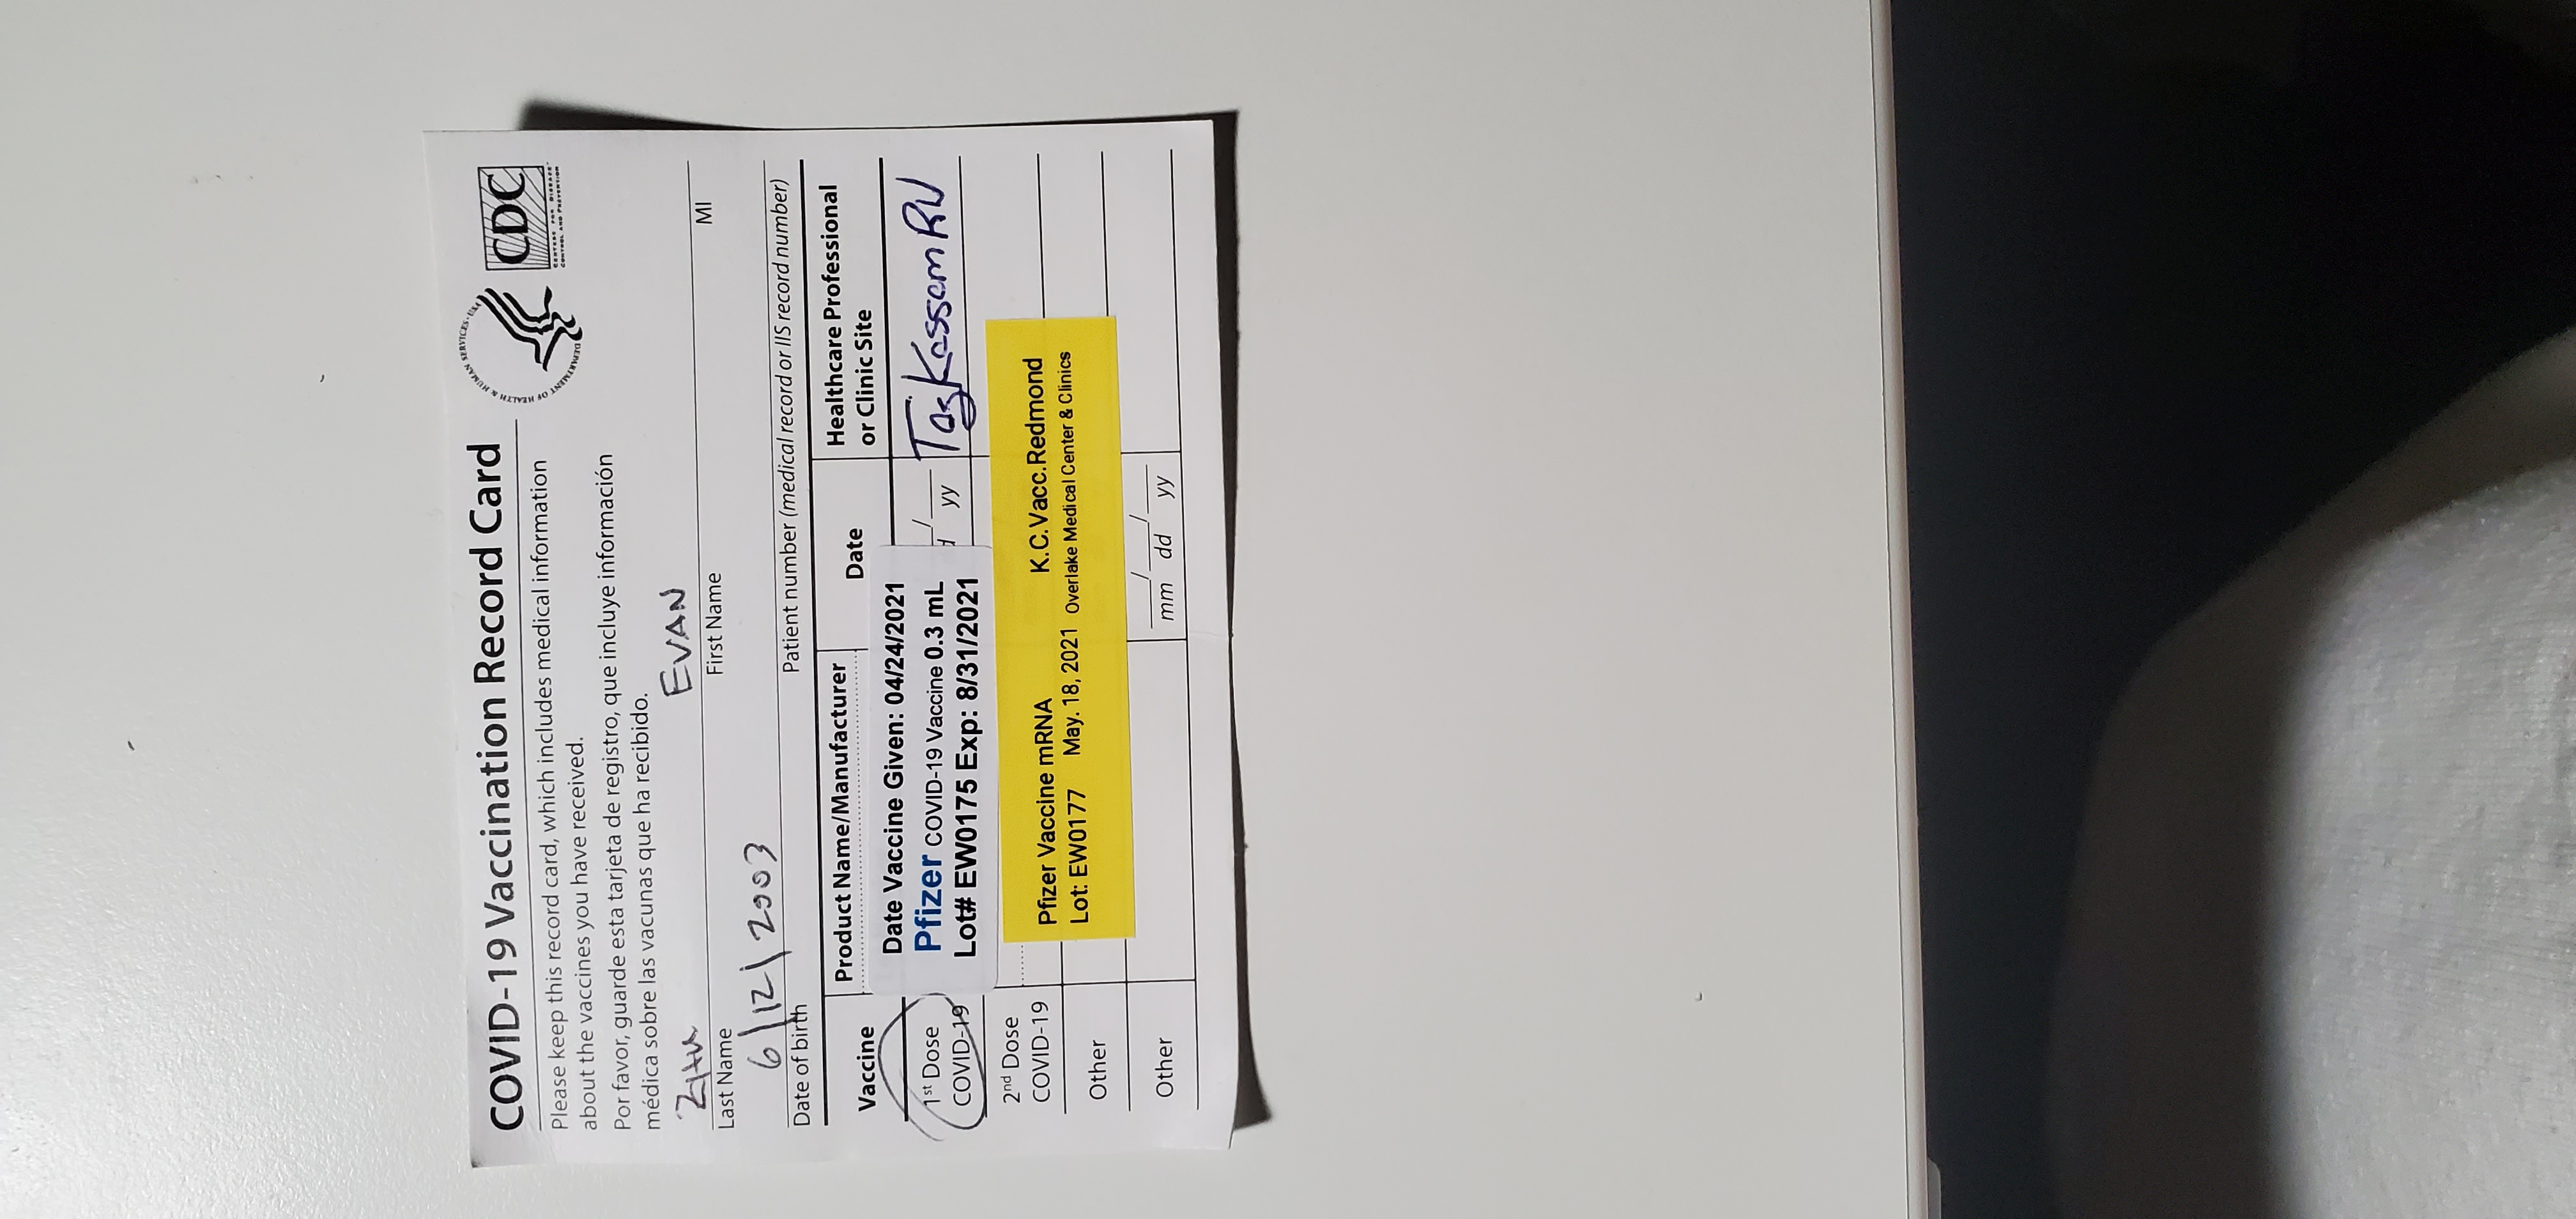 COVID-19 Vaccination Record Card
DEPARTMENT OF HEALTH & HUMAN SERVICES · USA
CDC
CENTERS FOR DISEASE
CONTROL AND PREVENTION
Please keep this record card, which includes medical information
about the vaccines you have received.
Por favor, guarde esta tarjeta de registro, que incluye información
médica sobre las vacunas que ha recibido.
EVAN
Last Name First Name MI
6/12/2003
Date of birth Patient number (medical record or IIS record number)
Vaccine
Product Name/Manufacturer
Date
Healthcare Professional
or Clinic Site
1st Dose
COVID-19
Date Vaccine Given: 04/24/2021
Pfizer COVID-19 Vaccine 0.3 mL
Lot# EW0175 Exp: 8/31/2021
/ yy
Kassam RN
2nd Dose
COVID-19
Pfizer Vaccine mRNA K.C.Vacc.Redmond
Lot: EW0177 May. 18, 2021 Overlake Medical Center & Clinics
Other
Other
/ /
mm dd yy